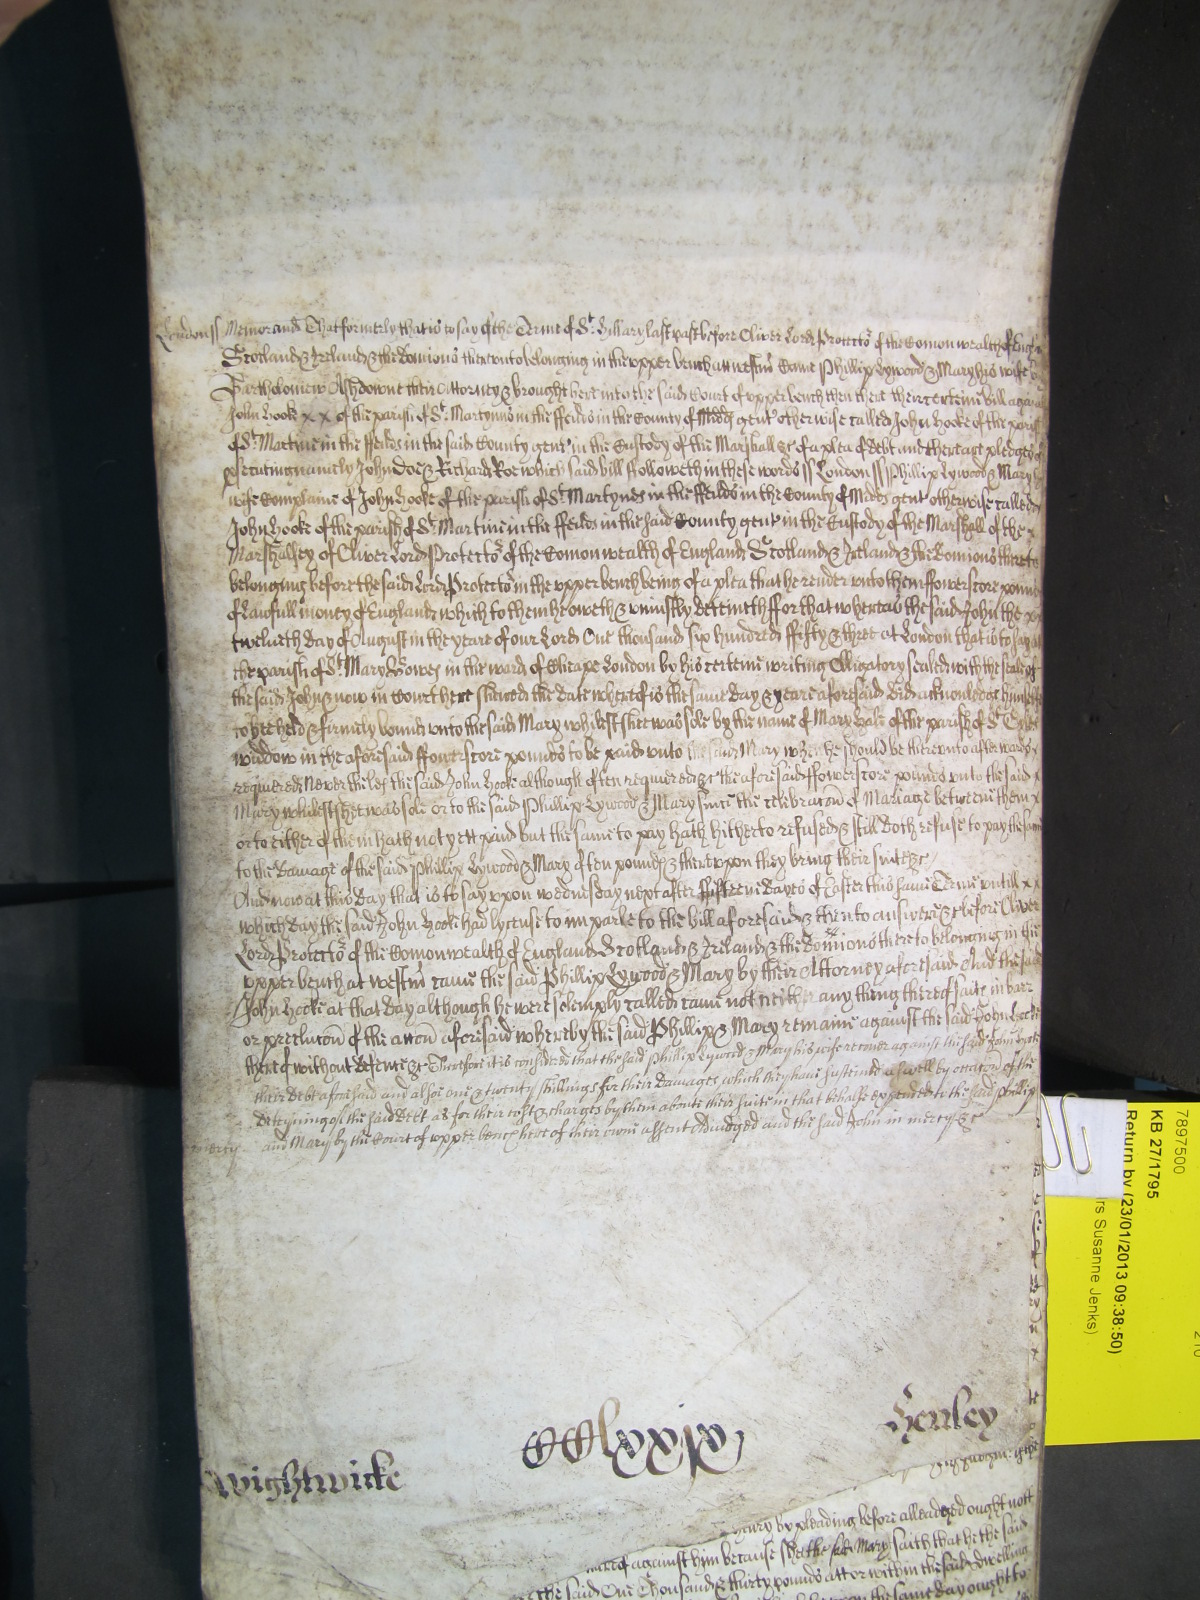 London ss Memorand That formerly that is to say of the Terme of St Hillary last past before Oliver Lord Protector of the Comonwealth of Engl
Scotland & Ireland & the Dominions thereunto belonging in the upper bench att westm Came Phillip Lywood & Mary his wife by
Bartholomew Ashdowne their Attorney & brought here into the said Court of upper bench then there their certeine bill against
John Hooke x x of the parish of St Martyns in the ffeilds in the County of Midds gent otherwise called John Hooke of the parish
of St Martins in the ffeilds in the said County gent in the Custody of the Marshall &c of a plea of debt and there are pledges of
psecuting namely John Doe & Richard Roe which said bill followeth in these words ss London ss Phillip Lywood & Mary his
wife Complaine of John Hooke of the parish of St Martyns in the ffeilds in the County of Midds gent otherwise called
John Hooke of the parish of St Martins in the ffeilds in the said County gent in the Custody of the Marshall of the x
Marshallsey of Oliver Lord Protector of the Comonwealth of England Scotland & Ireland & the Dominions thereto
belonging before the said Lord Protector in the upper bench being of a plea that he render unto them ffowerscore pounds
of lawfull money of England which to them he oweth & uniustly deteineth ffor that whereas the said John the xx
twelueth day of August in the yeare of our Lord One thousand six hundred fifty & three at London that is to say in
the parish of St Mary Bowes in the ward of Cheape London by his certeine writing Obligatory sealed with the seale of
the said John & now in Court here shewed the date whereof is the same day & yeare aforesaid did acknowledge himselfe
to bee held & firmely bound unto the said Mary whilest shee was sole by the name of Mary of the parish of St
widdow in the aforesaid ffowerscore pounds to be paid unto the said Mary when he should be thereunto afterwards
required Neverthelес the said John Hooke although often required &c the aforesaid ffowerscore pounds unto the said x
Mary whilest shee was sole or to the said Phillip Lywood & Mary since the celebracon of Mariage betweene them x
or to either of them hath not yett paid but the same to pay hath hitherto refused & still doth refuse to pay the same
to the damage of the said Phillip Lywood & Mary of ten pounds & thereupon they bring their suite &c
And now at this day that is to say upon wednesday next after fifteene dayes of Easter this same Terme untill x x
which day the said John Hooke had lycense to imparle to the bill aforesaid & then to answere &c before Oliver
Lord Protector of the Comonwealth of England Scotland & Ireland & the Dominions thereto belonging in the
upper bench at westm came the said Phillip Lywood & Mary by their Attorney aforesaid And the said
John Hooke at that day although he were solemply called came not neither any thing thereof saith in barr
or preclucon of the accon aforesaid whereby the said Phillip & Mary remaine against the said John Hooke
thereof without defence &c Therefore it is considered that the said Phillip Lywood & Mary his wife recover against the said John Hooke
their debt aforesaid and alsoe one & twenty shillings for their damages which they have susteined aswell by occacon of the
deteyning of the said debt as for their costs & charges by them aboute their suite in that behalfe expended to the said Phillip
mercy and Mary by the Court of upper bench here of their owne assent Adiudged and the said John in mercy &c
Henley
CCLxxix
Wightwicke
by pleading before alleadged ought nott
against him because she the sd Mary saith that he the said
the said One Thousand & thirty pounds att or within the said dwelling
the same day ought to
7897500
KB 27/1795
Return by (23/01/2013 09:38:50)
rs Susanne Jenks)